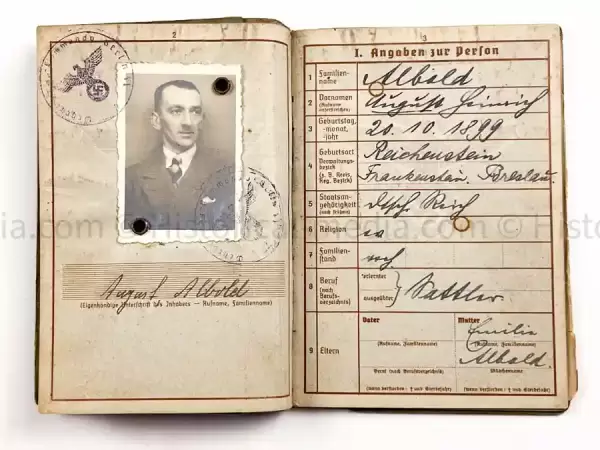 2
August Albold
(Eigenhändige Unterschrift des Inhabers — Rufname, Familienname)
3
I. Angaben zur Person
1 Familien-
name Albold
2 Vornamen
(Rufname
unterstreichen) August Heinrich
3 Geburtstag,
-monat,
-jahr 20. 10. 1899
4 Geburtsort Reichenstein
Verwaltungs-
bezirk
(z. B. Kreis,
Reg. Bezirk) Frankenstein. Breslau.
5 Staatsan-
gehörigkeit
(auch frühere) dtsch. Reich
6 Religion
7 Familien-
stand
8 Beruf
(nach
Berufs-
verzeichnis) erlernter
ausgeübter Sattler
9 Eltern
Vater Mutter
Emilie
(Rufname, Familienname) (Rufname, Familienname)
Albold.
Beruf (nach Berufsverzeichnis) Mädchenname
(wenn verstorben: † und Sterbejahr) (wenn verstorben: † und Sterbejahr)
© HistoricalMedia.com